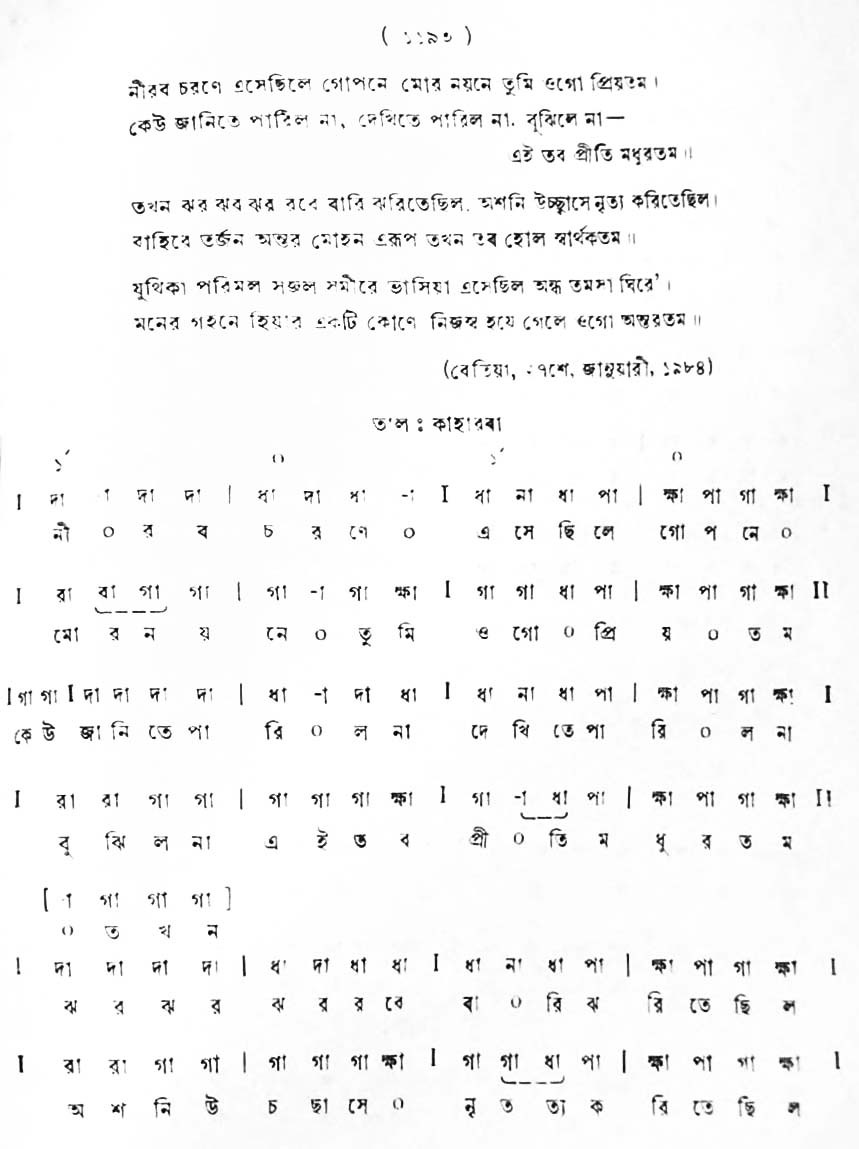 ( ১১৯৩ )
নীরব চরণে এসেছিলে গোপনে মোর নয়নে তুমি ওগো প্রিয়তম।
কেউ জানিতে পারিল না, দেখিতে পারিল না. বুঝিলে না—
এই তব প্রীতি মধুরতম॥
তখন ঝর ঝর ঝর রবে বারি ঝরিতেছিল. অশনি উচ্ছ্বাসে নৃত্য করিতেছিল।
বাহিরে তর্জন অন্তর মোহন এরূপ তখন তব হোল স্বার্থকতম॥
যুথিকা পরিমল সজল সমীরে ভাসিয়া এসেছিল অন্ধ তমসা ঘিরে'।
মনের গহনে হিয়ার একটি কোণে নিজস্ব হযে গেলে ওগো অন্তরতম॥
(বেতিয়া, ২৭শে, জানুয়ারী, ১৯৮৪)
তাল : কাহারবা
১´ ০ ১´ ০
I দা -া দা দা | ধা দা ধা -া I ধা না ধা পা | ক্ষা পা গা ক্ষা I
নী ০ র ব চ র ণে ০ এ সে ছি লে গো প নে ০
I রা রা গা গা | গা -া গা ক্ষা I গা গা ধা পা | ক্ষা পা গা ক্ষা II
মো র ন য় নে ০ তু মি ও গো ০ প্রি য় ০ ত ম
I গা গা I দা দা দা দা | ধা -া দা ধা I ধা না ধা পা | ক্ষা পা গা ক্ষা I
কে উ জা নি তে পা রি ০ ল না দে খি তে পা রি ০ ল না
I রা রা গা গা | গা গা গা ক্ষা I গা -া ধা পা | ক্ষা পা গা ক্ষা II
বু ঝি ল না এ ই ত ব প্রী ০ তি ম ধু র ত ম
[ -া গা গা গা ]
০ ত খ ন
I দা দা দা দা | ধা দা ধা ধা I ধা না ধা পা | ক্ষা পা গা ক্ষা I
ঝ র ঝ র ঝ র র বে বা ০ রি ঝ রি তে ছি ল
I রা রা গা গা | গা গা গা ক্ষা I গা গা ধা পা | ক্ষা পা গা ক্ষা I
অ শ নি উ চ ছা সে ০ নৃ ত ত্য ক রি তে ছি ল